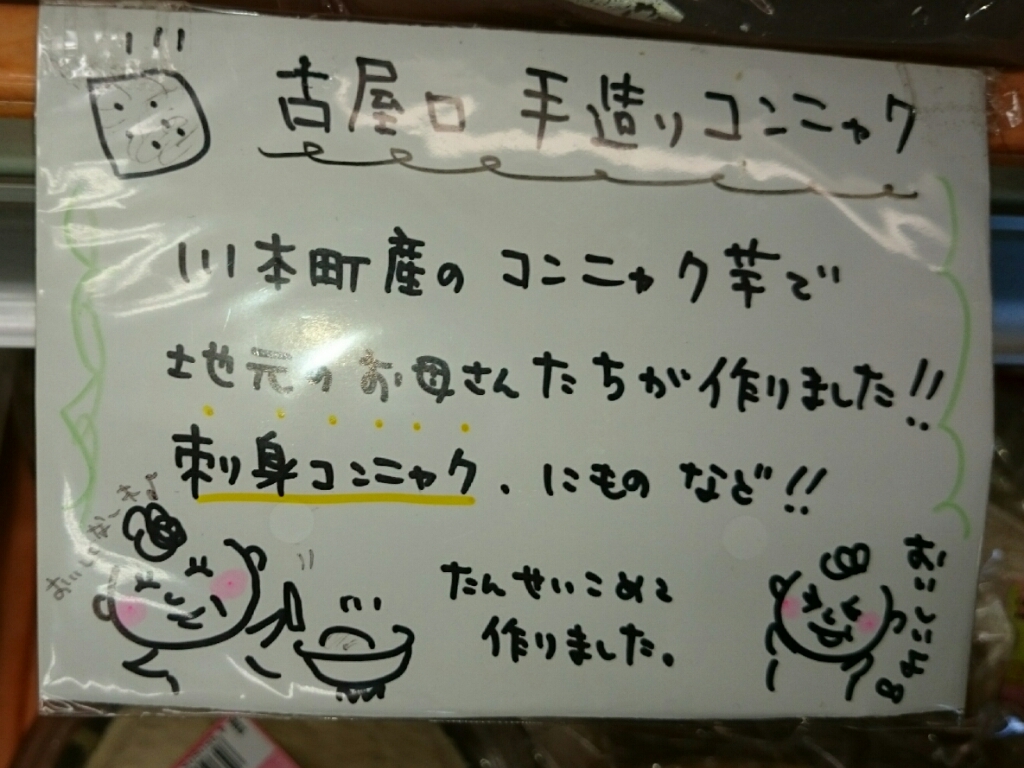 古屋口 手造りコンニャク
川本町産の コンニャク芋で
地元のお母さんたちが作りました!!
刺身コンニャク、にもの など!!
たんせいこめて
作りました。
おいしくなーれ♪
おいしいよ